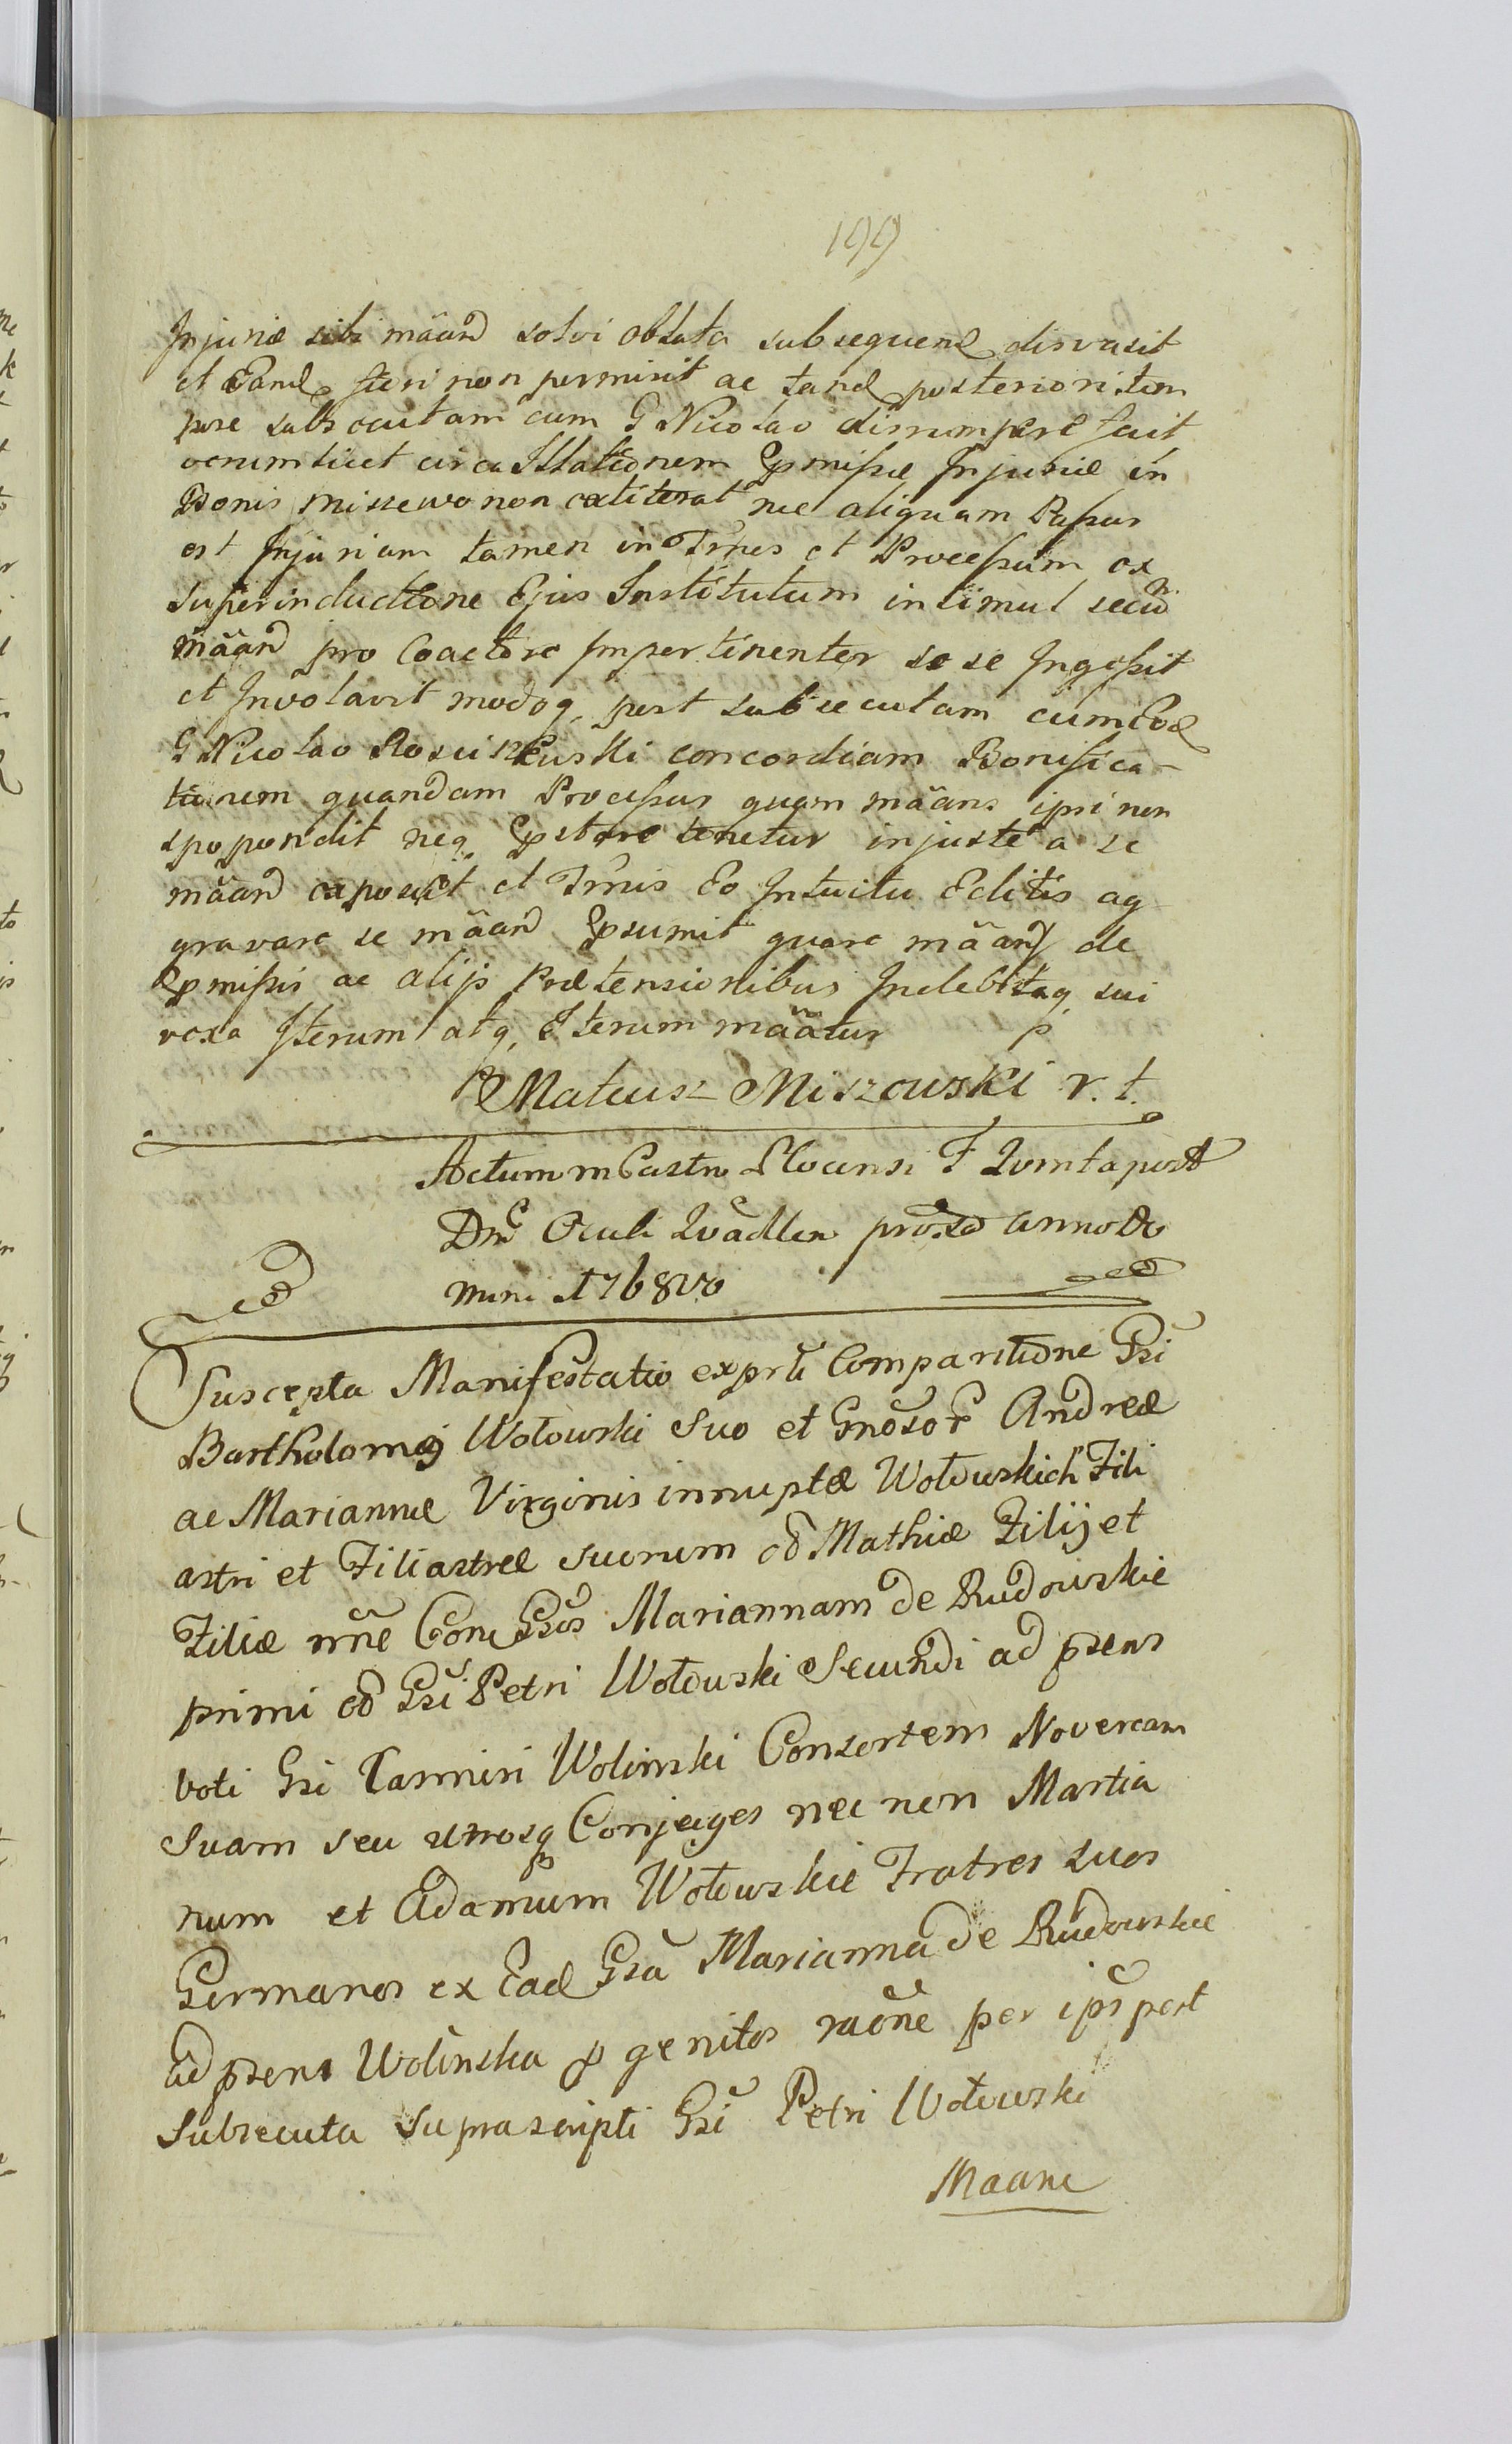 199
Injuriæ sibi mãand solvi oblata subsequend disvasit
et Eand fieri non permisit ac tand posteriori tem
pore subsecutam cum G Nicolao disrumpere fecit
verum licet circa Illationem Præmissæ Injuriæ in
Bonis Miszewo non extiterat nec aliquam Passus
est Injuriam tamen in Trnes et Processum ex
superinductione Ejus Institutum insimul secum
mãand pro Coactore Impertinenter se se Ingessit
et Involavit modoq, post subsecutam cum Eod
G Nicolao Rosciszewski concordiam Bonifica-
tionem quandam Processus quam mãans ipsi non
spopondit neq, Præstare tenetur injuste a se
mãand exposcit et Trnis Eo Intuitu Editis ag
gravare se mãand Præsumit quare mãand de
Præmissis ac alijs Prætensionibus Indebitaq, sui
vexa Iterum atq, Iterum mãatur p
Mateusz Miszowski r. t.
Actum in Castro Plocensi F Quinta post
Dnc Oculi Quadlem proxo Anno Do
mini 1768vo
Suscepta Manifestatio ex prti Comparitione Gsi
Bartholomej Wołowski Suo et Gnosor Andreæ
ac Mariannæ Virginis innuptæ Wołowskich Fili
astri et Filiastræ suorum od Mathiæ Filij et
Filiæ nne Con Gsos Mariannam de Rudowskie
primi od Gsi Petri Wołowski Secundi ad psens
voti Gsi Casmiri Wolinski Consortem Novercam
Suam seu utrosq Conjuges nec non Martia
num et Adamum Wołowskie Fratres suos
Germanos ex Ead Gsa Marianna de Rudowskie
ad psens Wolinska p genitos raõne per ips post
Subsecuta Suprascripti Gsi Petri Wołowski
Maane